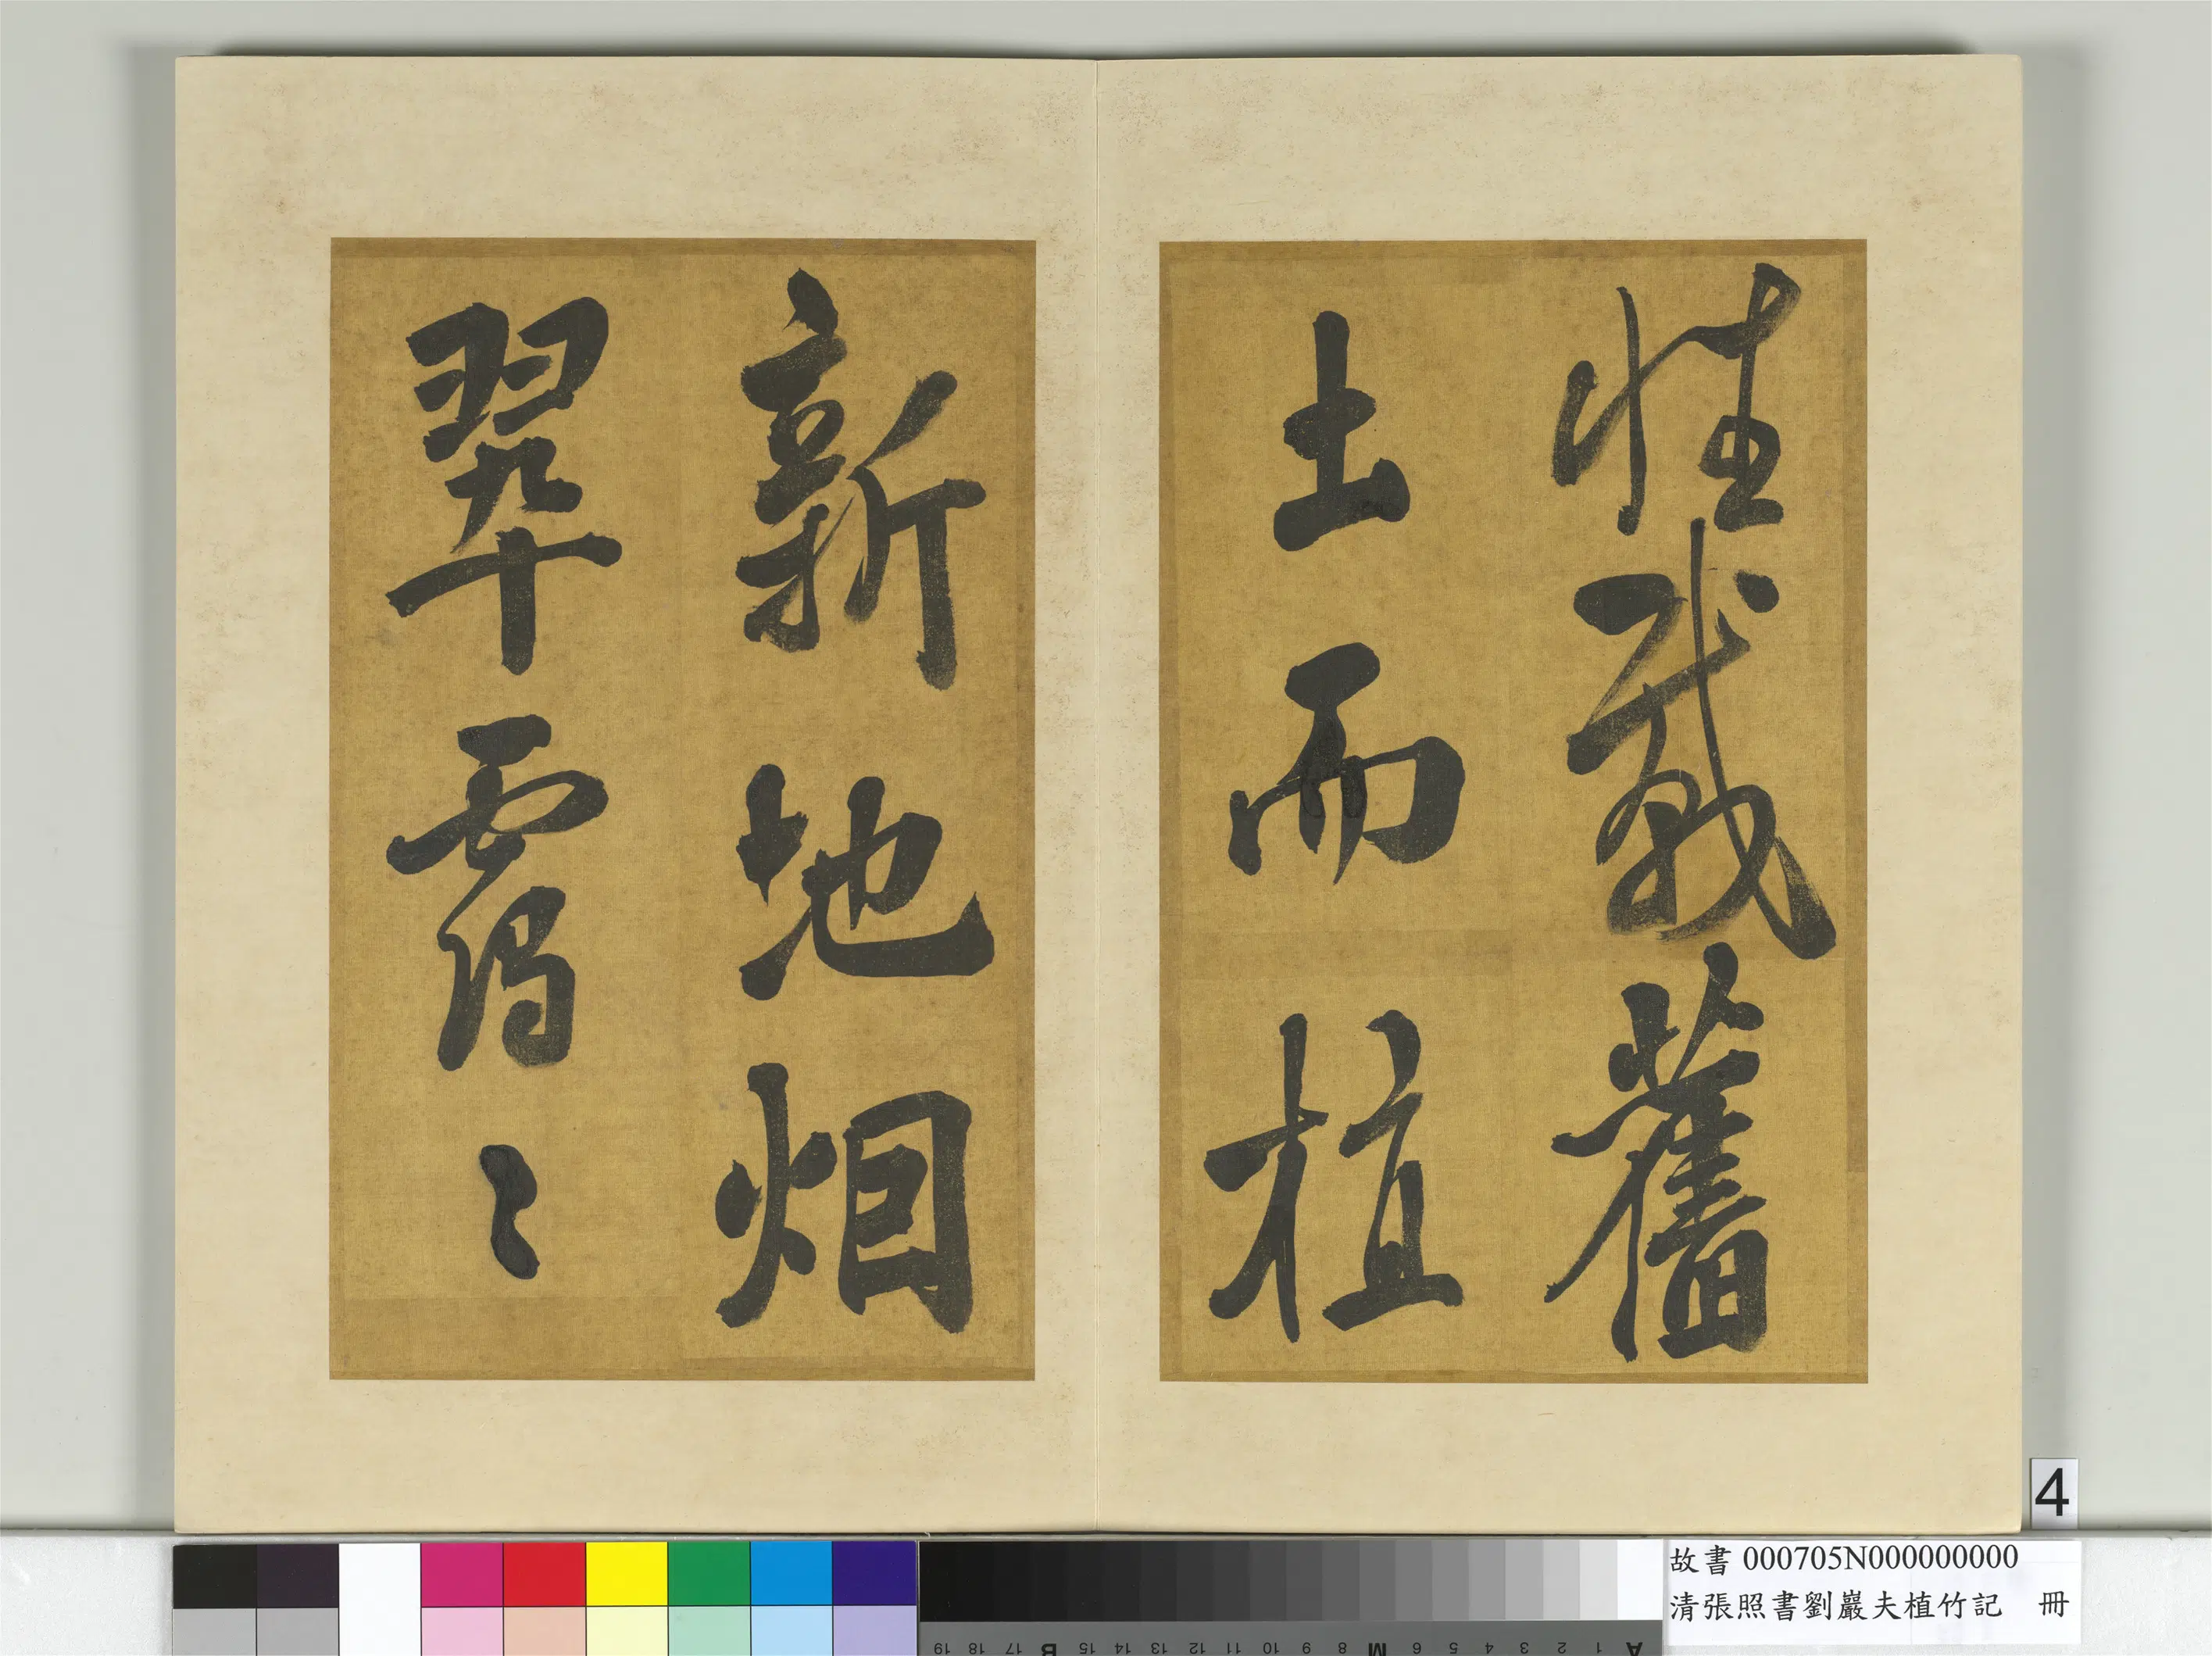 性載舊
土而植
新地烟
翠靄〻
4
故書 000705N000000000
清張照書劉巖夫植竹記 冊
A 1 2 3 4 5 6 M 8 9 10 11 12 13 14 15 B 17 18 19